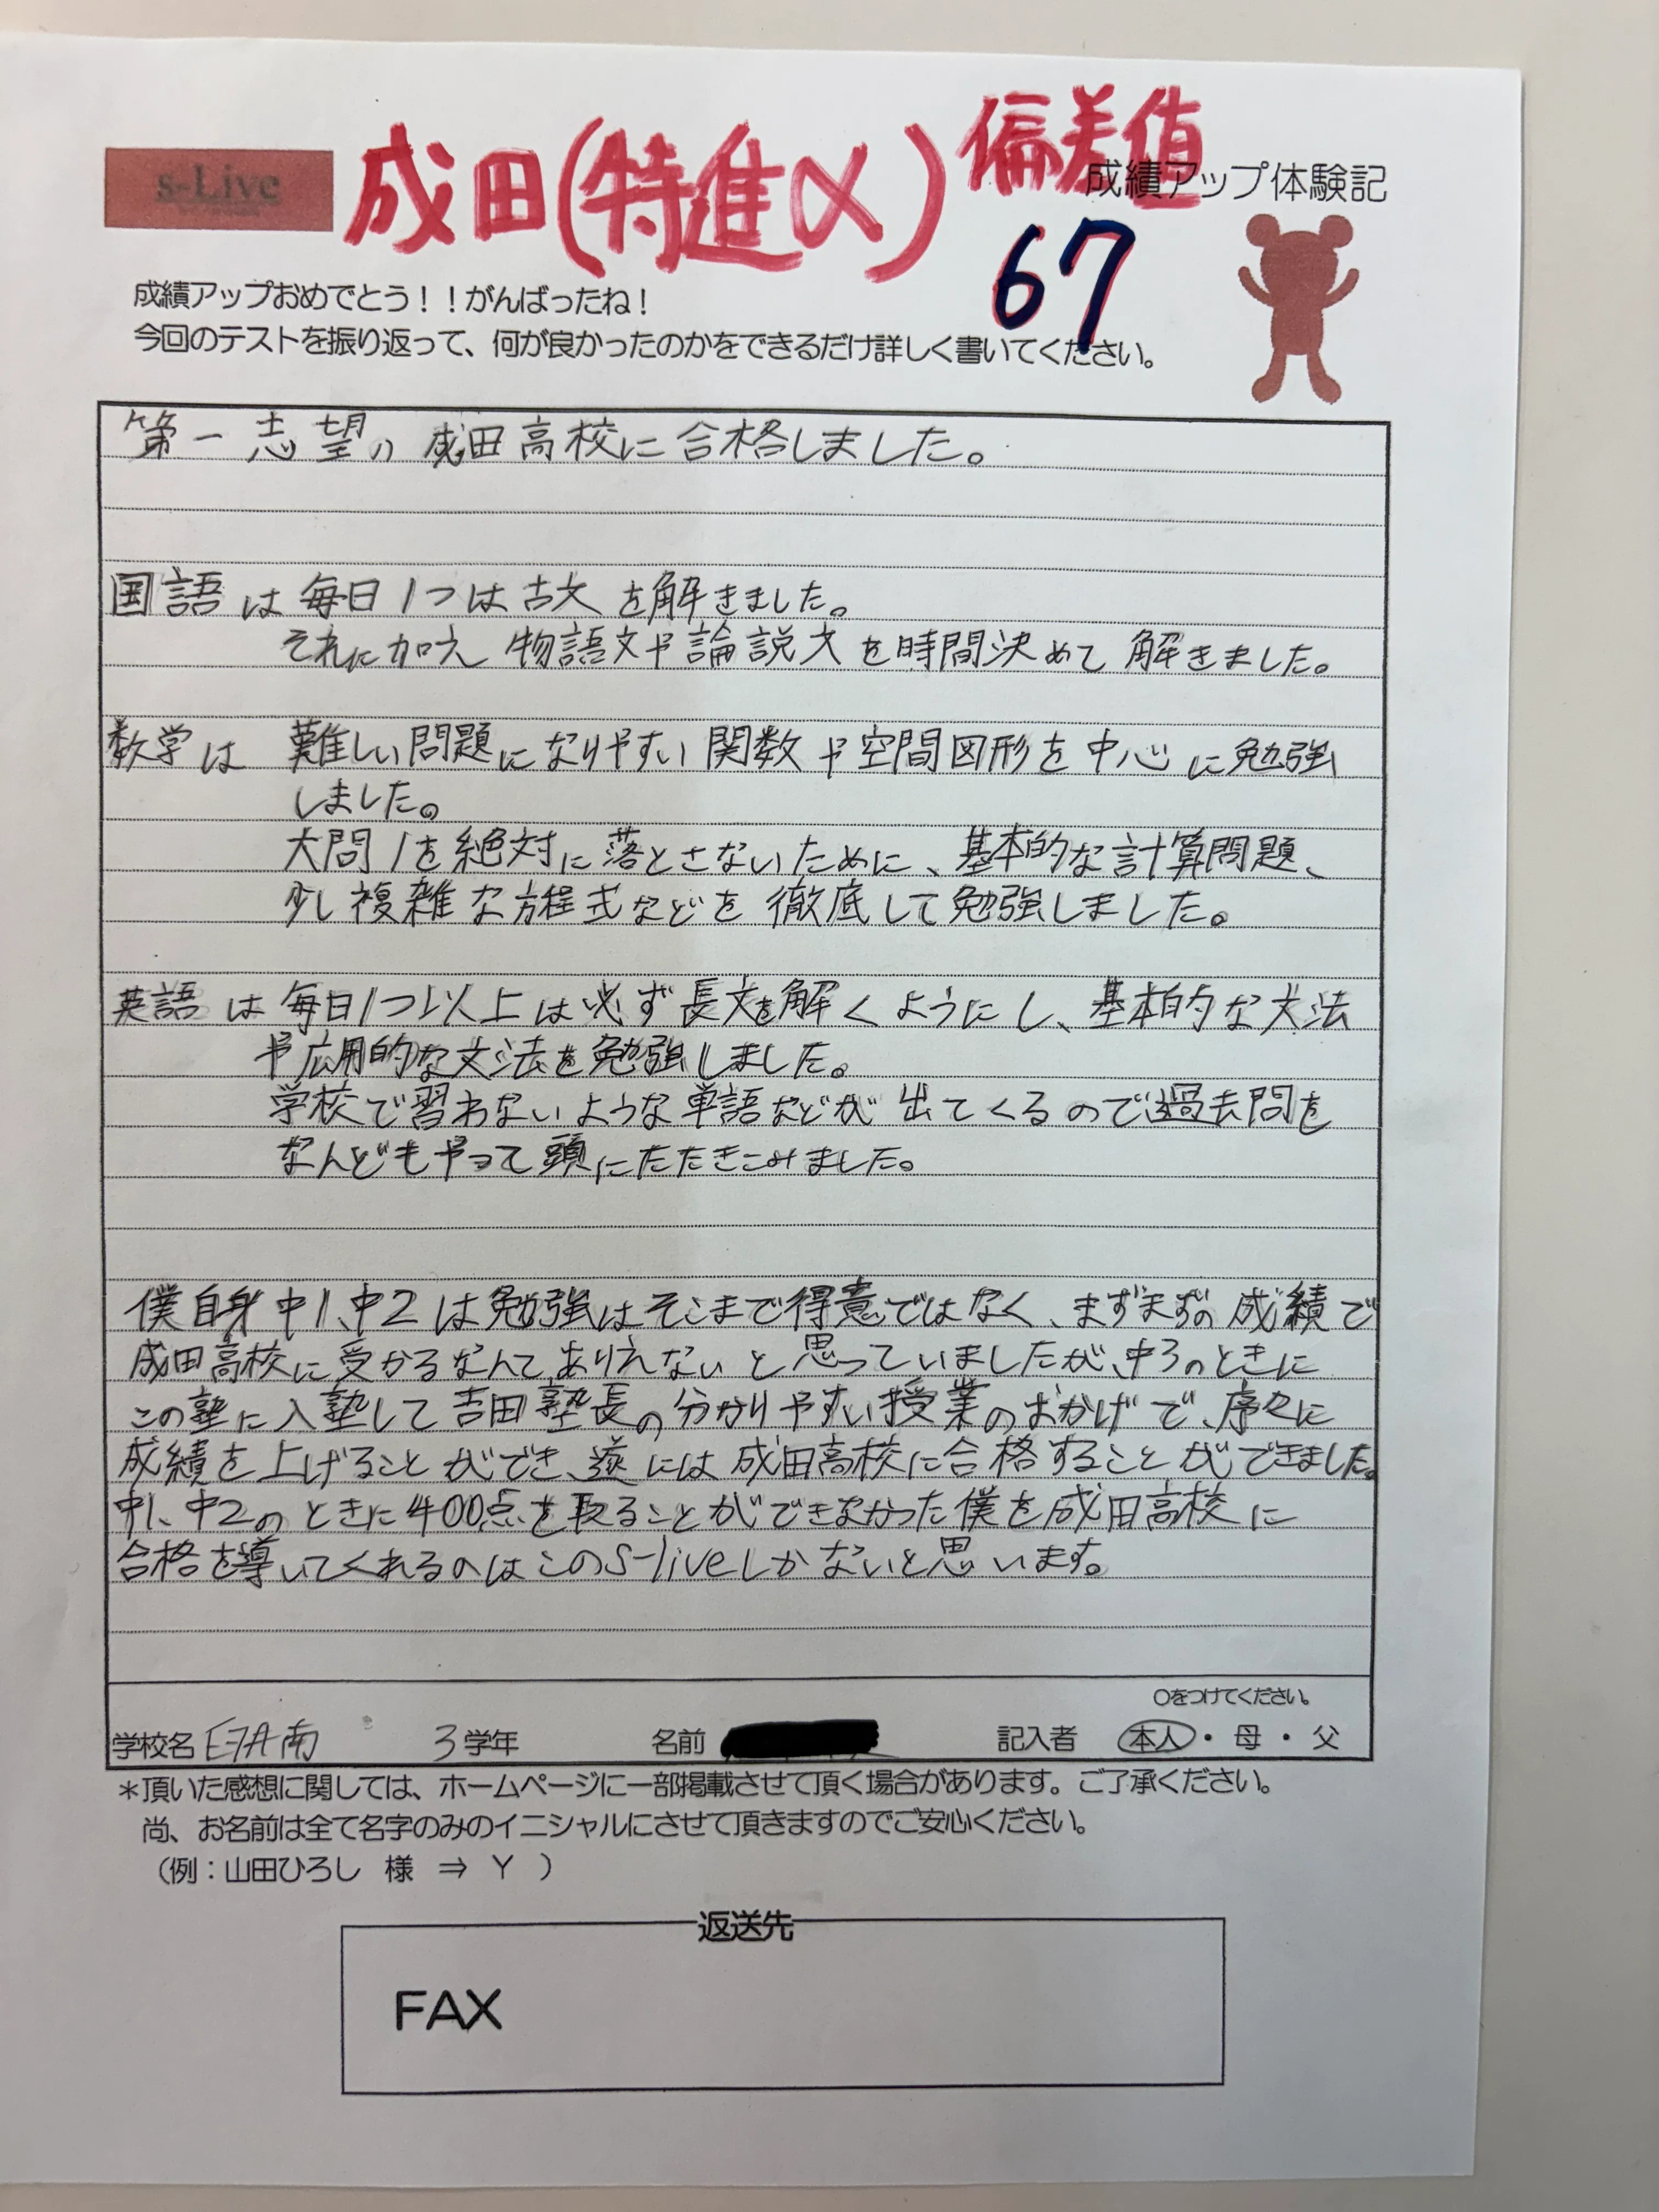 s-Live
成田(特進α)偏差値
67
成績アップ体験記
成績アップおめでとう！！がんばったね！
今回のテストを振り返って、何が良かったのかをできるだけ詳しく書いてください。
第一志望の成田高校に合格しました。
国語は毎日1つは古文を解きました。
それに加え物語文や論説文を時間決めて解きました。
数学は難しい問題になりやすい関数や空間図形を中心に勉強
しました。
大問1を絶対に落とさないために、基本的な計算問題、
少し複雑な方程式などを徹底して勉強しました。
英語は毎日1つ以上は必ず長文を解くようにし、基本的な文法
や応用的な文法を勉強しました。
学校で習わないような単語などが出てくるので過去問を
なんどもやって頭にたたきこみました。
僕自身中1、中2は勉強はそこまで得意ではなく、まずまずの成績で
成田高校に受かるなんてありえないと思っていましたが、中3のときに
この塾に入塾して吉田塾長の分かりやすい授業のおかげで、序々に
成績を上げることができ、遂には成田高校に合格することができました。
中1、中2のときに400点を取ることができなかった僕を成田高校に
合格を導いてくれるのはこのS-liveしかないと思います。
〇をつけてください。
学校名 印旛南 3学年 名前 記入者 本人・母・父
＊頂いた感想に関しては、ホームページに一部掲載させて頂く場合があります。ご了承ください。
尚、お名前は全て名字のみのイニシャルにさせて頂きますのでご安心ください。
（例：山田ひろし 様 ⇒ Y ）
返送先
FAX